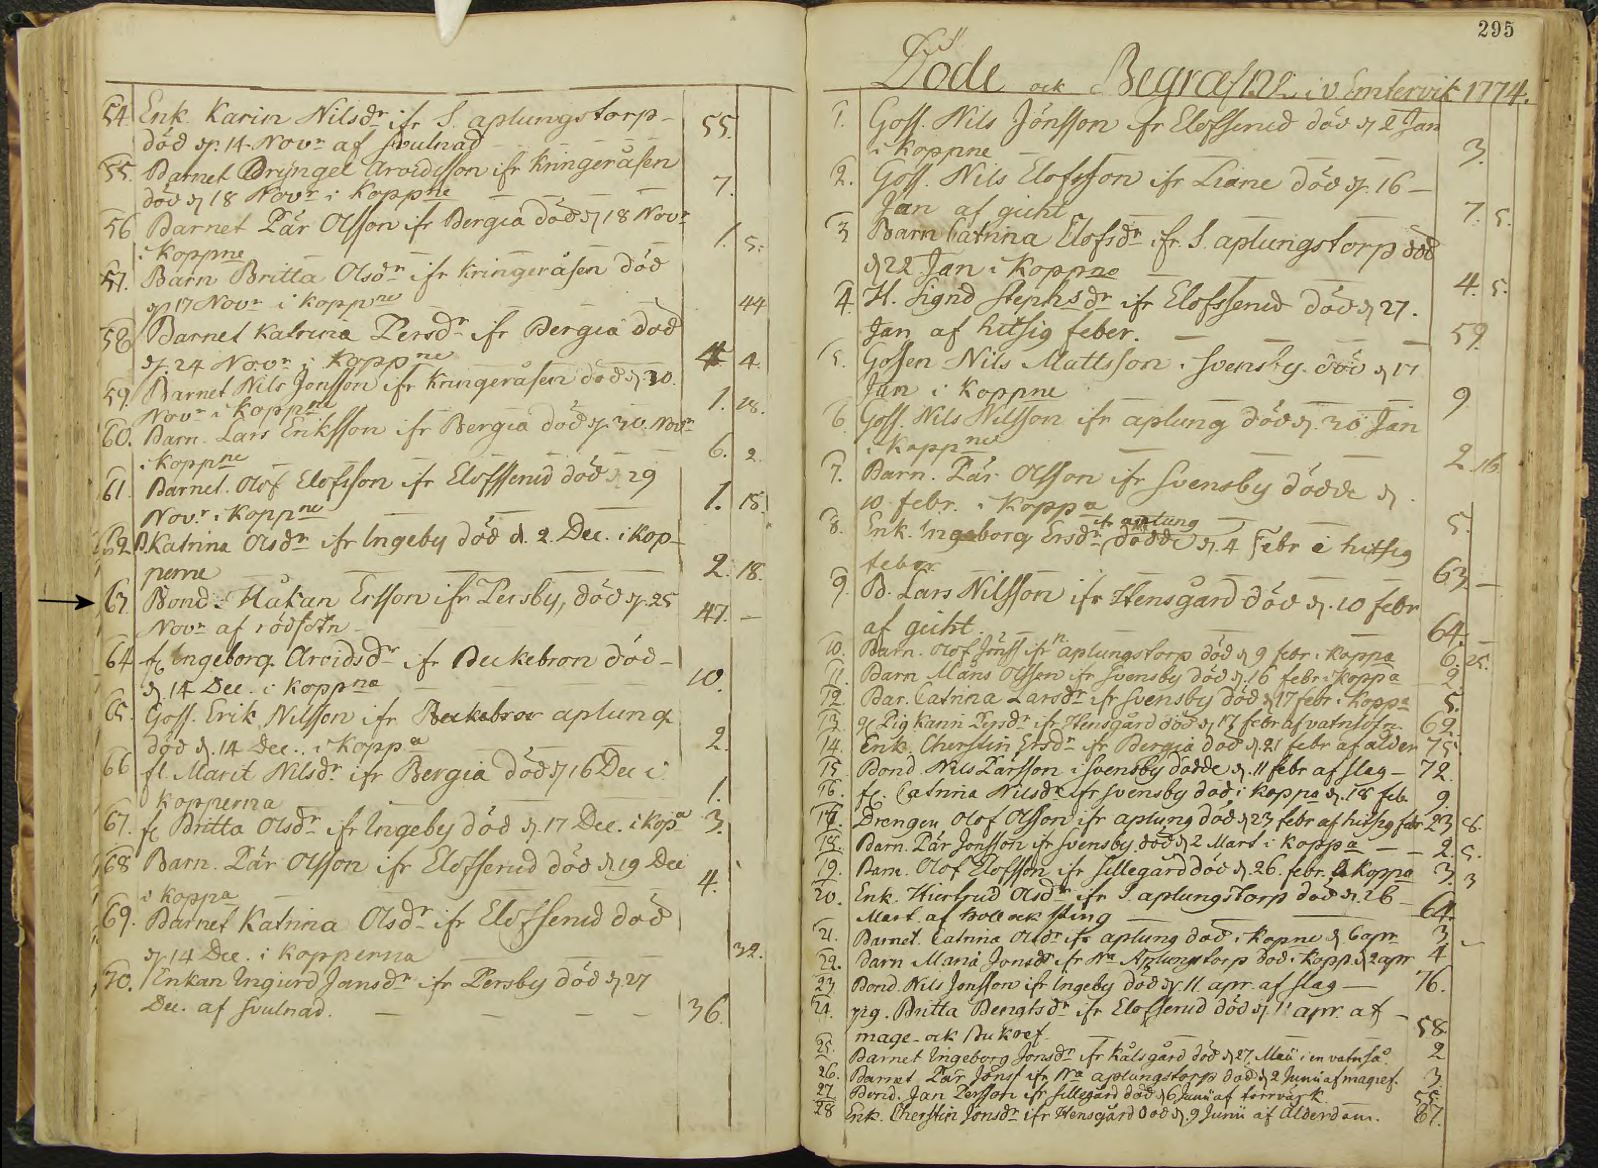 54. Enk. Karin Nilsdr ifr S. aplungstorp 55.
död d. 14 Novr af svulnad
55. Barnet Bryngel Arvidsson ifr Kringeråsen
död d 18 Novr i Koppne 7.
56 Barnet Pär Olsson ifr Bergia död d 18 Novr
i Koppne 1. 5.
57. Barn Britta Olsdr ifr Kringeråsen död
d 17 Novr i Koppne 44
58 Barnet Katrina Persdr ifr Bergia död
d. 24 Novr i Koppne 4 4.
59. Barnet Nils Jonsson ifr Kringeråsen död d. 30.
Novr i Koppne 1. 18.
60. Barn. Lars Eriksson ifr Bergia död d. 30. Novr
i Koppne 6. 2.
61. Barnet. Olof Elofsson ifr Elofsserud död d 29
Novr i Koppne 1. 18.
62 B. Katrina Olsdr ifr Ingeby död d. 2. Dec. i kop-
perne 2. 18.
63 Bond. Håkan Ersson ifr Persby, död d. 25
Novr af rödsotn 47. –
64 fl Ingeborg Arvidsdr ifr Beckebron död –
d. 14 Dec. i Koppna 10.
65. Goss. Erik Nilsson ifr aplung
död d. 14 Dec. i Koppa 2.
66 fl. Marit Nilsdr ifr Bergia död d 16 Dec i
kopperna 1.
67. fl Britta Olsdr ifr Ingeby död d. 17 Dec. i kopa 3.
68 Barn. Pär Olsson ifr Elofserud död d 19 Dec
i Koppa 4.
69. Barnet Katrina Olsdr ifr Elofserud död
d. 14 Dec. i kopperna 32.
70. Enkan Ingierd Jansdr ifr Persby död d 27
Dec. af svulnad. 36.
295
Döde och Begrafne i V. Emtervik 1774.
1. Goss. Nils Jönsson ifr Elofserud död d 2 Jan
i Koppne 3.
2. Goss. Nils Elofsson ifr Liane död d. 16 –
Jan af gicht 7. 5.
3 Barn Catrina Elofsdr ifr S. aplungstorp död
d 22 Jan i Koppne 4. 5.
4. H. Signd Stephsdr ifr Elofsserud död d 27.
Jan af hitsig feber. 59.
5. Gossen Nils Mattsson i Svensby död d 17
Jan i Koppne 9
6. Goss. Nils Nilsson ifr aplung död d. 20 Jan
i Koppne 2 16
7. Barn. Pär Olsson ifr Svensby dödde d
10 febr. i Koppa 5.
ifr aplung
8. Enk. Ingeborg Ersdr dödde d. 4 Febr i hitsig
feber 63 –
9. B. Lars Nilsson ifr Hensgård död d. 10 febr
af gicht 64.
10. Barn. Olof Jönss ifr n aplungstorp död d 9 febr i Koppa 6. 25.
11. Barn Måns Olssen ifr Svensby död d. 16 febr i Koppa 2
12. Bar. Catrina Larsdr ifr Svensby död d 17 febr i Koppa 5.
13. Pig Karin Persdr ifr Hensgård död d 17 febr af vatnsotn 69.
14. Enk. Cherstin Ersdr ifr Bergia död d 21 febr af ålder 75.
15 Bond. Nils Pärsson i Svensby dödde d. 11 febr af slag – 72.
16. fl. Catrina Nilsdr ifr Svensby död i koppa d. 18 feb. 9.
17. Drengen Olof Olsson ifr aplung död d 23 febr af hitsig feber 23 8.
18. Barn. Pär Jonsson ifr Svensby död d 2 Mart i Koppa 2. 5.
19. Barn. Olof Elofsson ifr Sillegård död d. 26. febr. i Koppa 3. 3
20. Enk. Olsdr ifr S. aplungstorp död d. 26 –
Mart. af håll och sting 64.
21. Barnet. Catrina Olsdr ifr aplung död i kopne d 6 apr 3
22. Barn Maria Jonsdr ifr Na Aplungstorp död i Kopp d 2 apr 4
23 Bond. Nils Jonsson ifr Ingeby död d. 11. apr. af slag – 76.
24. pig. Britta Bengtsdr ifr Elofserud död d. 11 apr. af –
mage- ock Bukref. 58
25. Barnet Ingeborg Jonsdr ifr Kålsgård död d 27 Maii i en vatnså 2
26. Barnet Pär Jönss ifr Na aplungstorp död d 2 Junii af magref. 3.
27. Bond. Jan Persson ifr Sillegård död d 6 Junii af torrvärk 55.
28 Enk. Cherstin Jonsdr ifr Hensgård död d. 9 Junii af Ålderdom. 87.